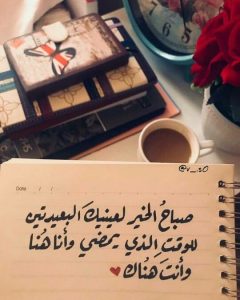 @v_.s0
Date / /
صباحُ الخير لعينيكَ البعيدتين
للوقتِ الذي يمضي وأنا هُنا
وأنتَ هُناك